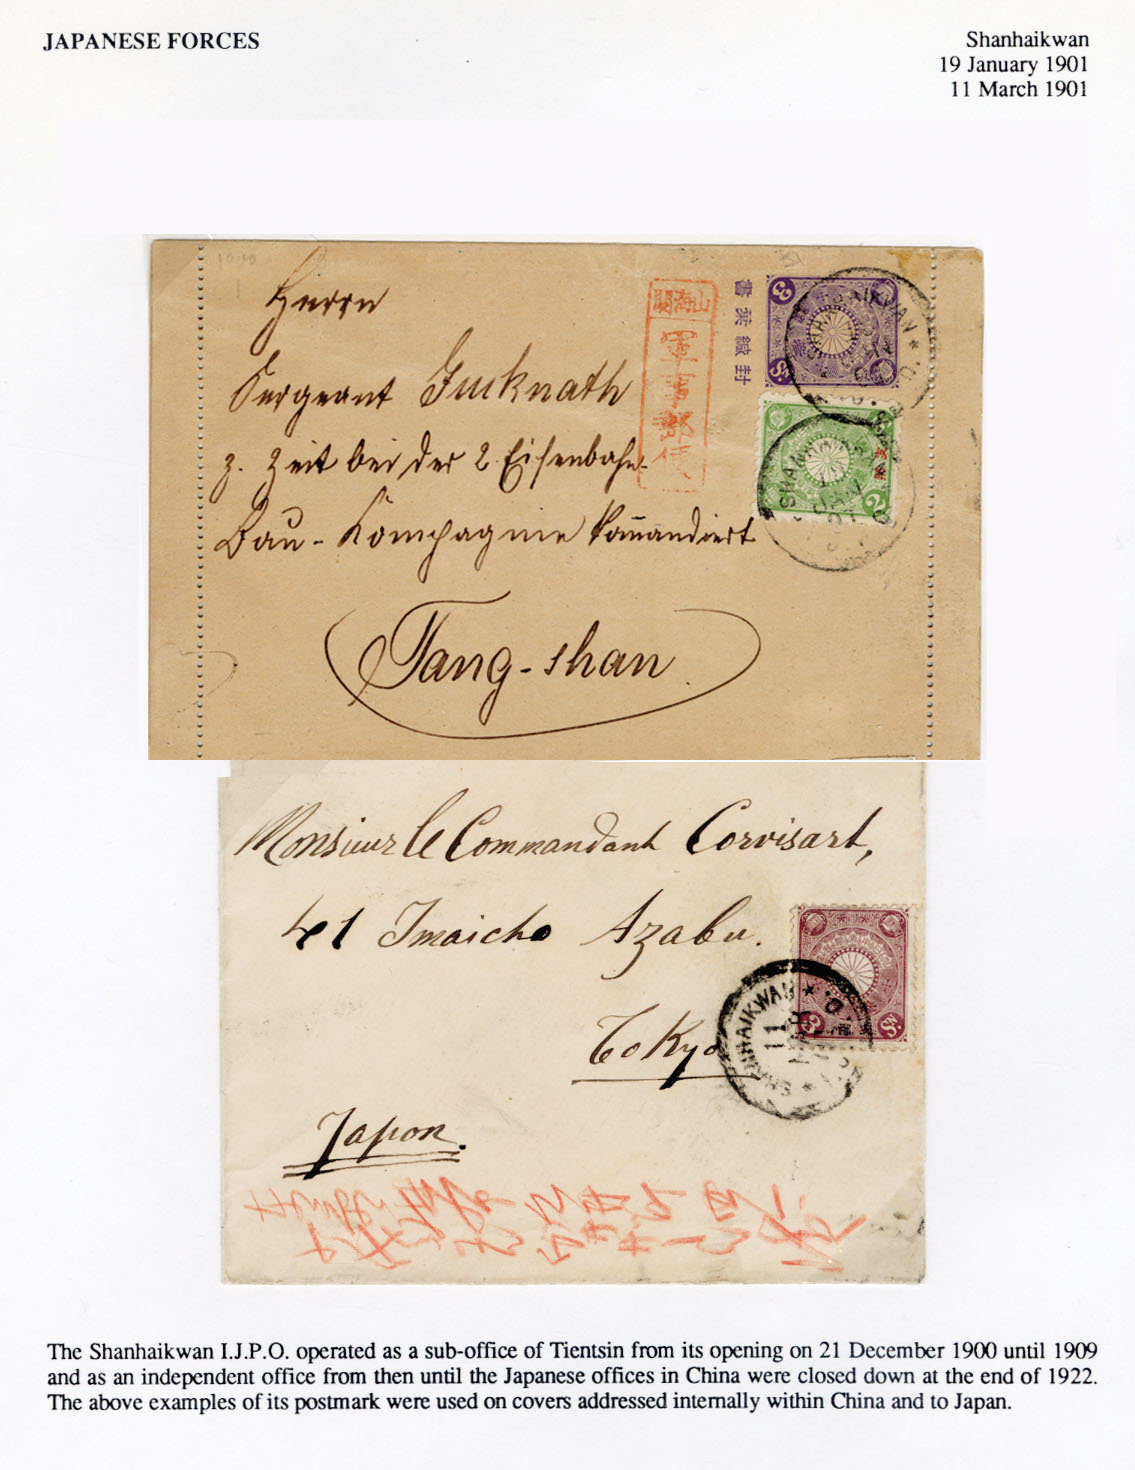 JAPANESE FORCES
Shanhaikwan
19 January 1901
11 March 1901
Herrn
Sergeant Jucknath
z. Zeit bei der 2 Eisenbahn-
Bau-Kompagnie kommandiert
Tang-shan
山海關
軍事郵便
封緘葉書
3 Sn.
SHANHAIKWAN
2
SHANHAIKWAN
JAN
01
Monsieur le Commandant Corvisart,
41 Imaicho Azabu.
Tokyo
Japon.
3 Sn.
SHANHAIKWAN
11
MAR
The Shanhaikwan I.J.P.O. operated as a sub-office of Tientsin from its opening on 21 December 1900 until 1909
and as an independent office from then until the Japanese offices in China were closed down at the end of 1922.
The above examples of its postmark were used on covers addressed internally within China and to Japan.